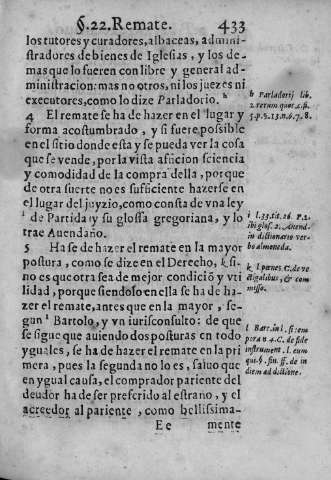 §.22.Remate. 433
los tutores y curadores, albaceas, admini-
stradores de bienes de Iglesias, y los de-
mas que lo fueren con libre y general ad-
ministracion: mas no otros, ni los juezes ni
executores, como lo dize Parladorio. h
4 El remate se ha de hazer en el lugar y
forma acostumbrado, y si fuere possible
en el sitio donde esta y se pueda ver la cosa
que se vende, por la vista aficion sciencia
y comodidad de la compra della, porque
de otra suerte no es sufficiente hazerse en
el lugar del juyzio, como consta de vna ley
i de Partida y su glossa gregoriana, y lo
trae Auendaño.
5 Ha se de hazer el remate en la mayor
postura, como se dize en el Derecho, k si-
no es que otra sea de mejor condició y vti
lidad, porque siendolo en ella se ha de ha-
zer el remate, antes que en la mayor, se-
gun l Bartolo, y vn iurisconsulto: de que
se sigue que auiendo dos posturas en todo
yguales, se ha de hazer el remate en la pri
mera, pues la segunda no lo es, saluo que
en ygual causa, el comprador pariente del
deudor ha de ser preferido al estraño, y el
acreedor al pariente, como bellissima-
Ee mente
h Parladorij lib.
2. rerum quot. c.fi.
i l.33. tit.26. P.2.
ibi glos.2. Auend.
in dictionario ver-
bo almoneda.
k l. penes. C. de ve
ctigalibus, & com
misso.
l Bart. in l. si tem
pora n 4. C. de fide
instrument. l. eum
qui. §. fin. ff. de in
diem addictione.